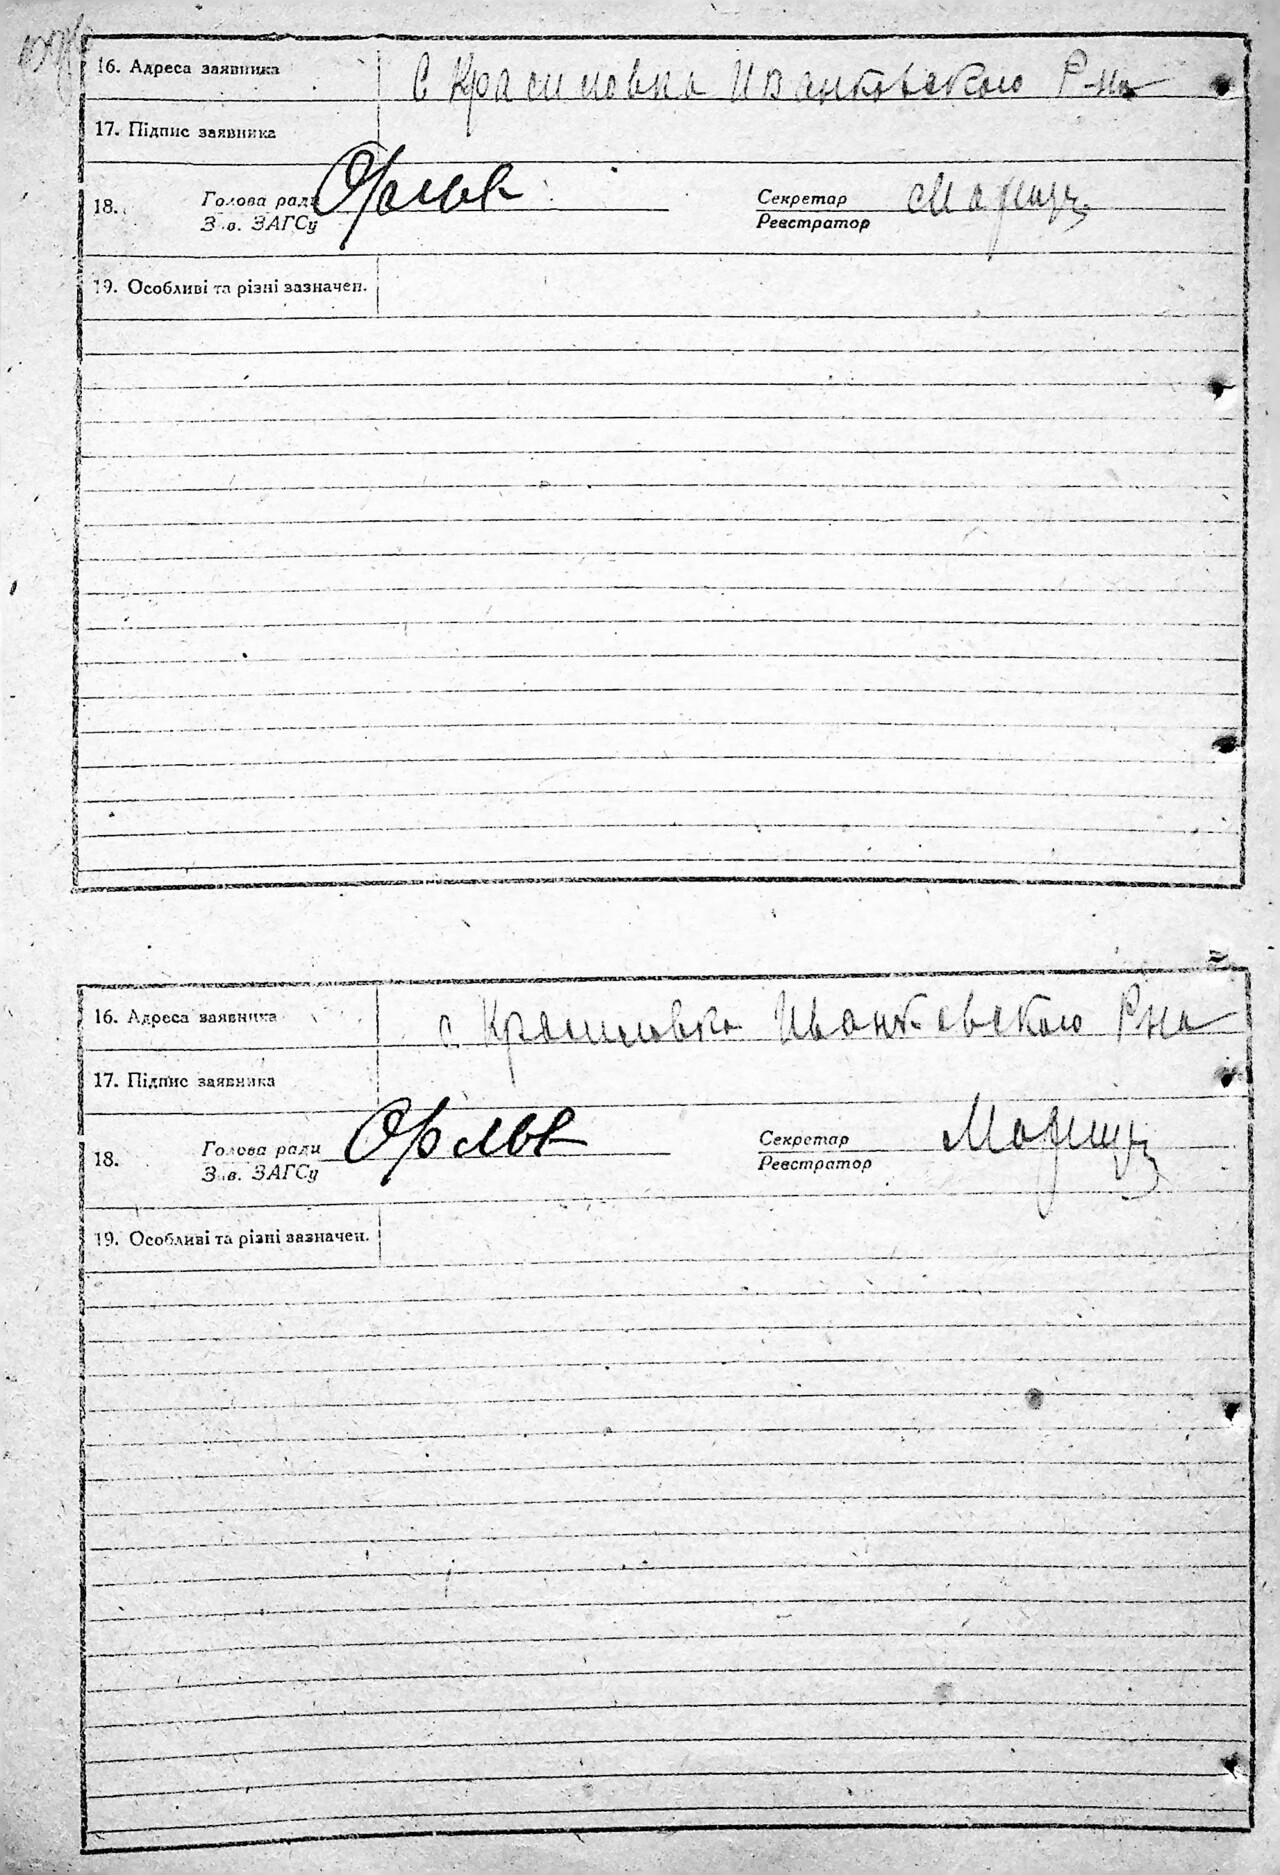 16. Адреса заявника С Красиловка Иванковского Р-на
17. Підпис заявника
18. Голова ради Орлык Секретар
З в. ЗАГСу Реєстратор
19. Особливі та різні зазначен.
16. Адреса заявника с. Красиловка Иванковского Р-на
17. Підпис заявника
18. Голова ради Орлык Секретар
З в. ЗАГСу Реєстратор
19. Особливі та різні зазначен.